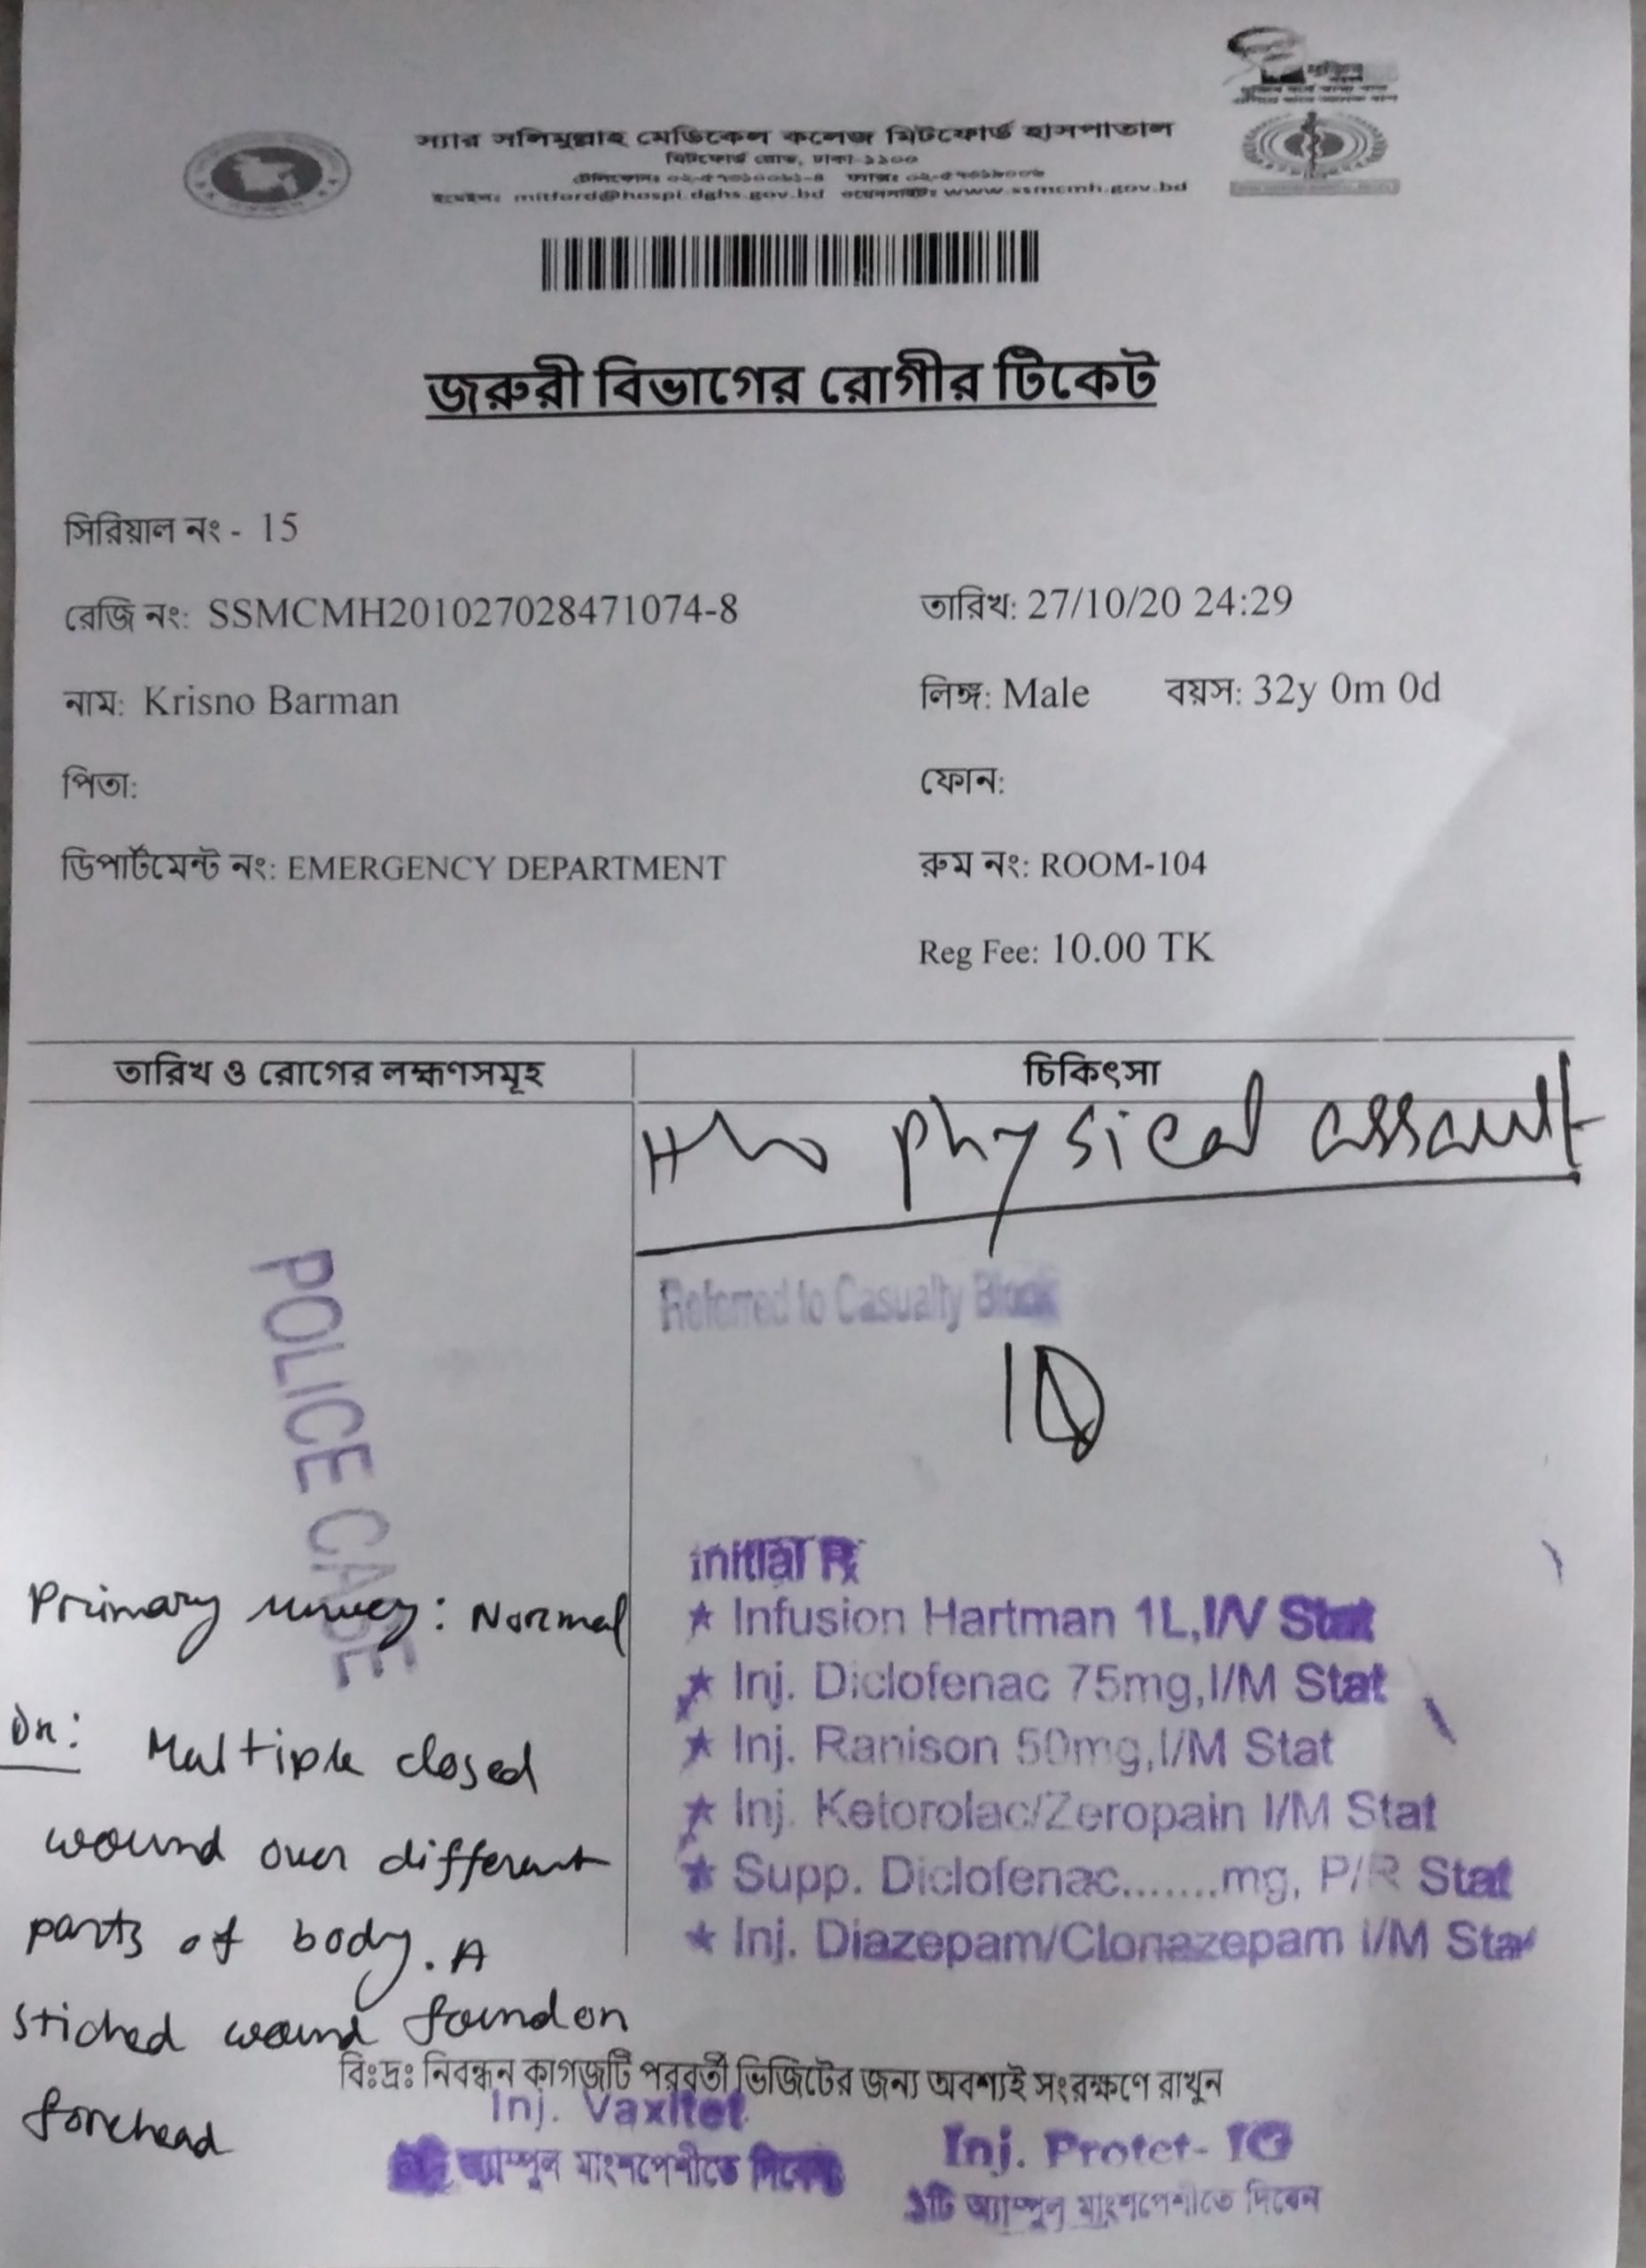 স্যার সলিমুল্লাহ মেডিকেল কলেজ মিটফোর্ড হাসপাতাল
মিটফোর্ড রোড, ঢাকা-১১০০
ইমেইলঃ mitford@hospi.dghs.gov.bd ওয়েবসাইটঃ www.ssmcmh.gov.bd
জরুরী বিভাগের রোগীর টিকেট
সিরিয়াল নং - 15
রেজি নং: SSMCMH201027028471074-8 তারিখ: 27/10/20 24:29
নাম: Krisno Barman লিঙ্গ: Male বয়স: 32y 0m 0d
পিতা: ফোন:
ডিপার্টমেন্ট নং: EMERGENCY DEPARTMENT রুম নং: ROOM-104
Reg Fee: 10.00 TK
তারিখ ও রোগের লক্ষণসমূহ চিকিৎসা
H/o physical assault
Referred to Casualty Block
POLICE CASE
Primary survey: Normal
On: Multiple closed
wound over different
parts of body. A
stiched wound found on
forehead
Initial Rx
★ Infusion Hartman 1L,I/V Stat
★ Inj. Diclofenac 75mg,I/M Stat
★ Inj. Ranison 50mg,I/M Stat
★ Inj. Ketorolac/Zeropain I/M Stat
★ Supp. Diclofenac.......mg, P/R Stat
★ Inj. Diazepam/Clonazepam I/M Stat
বিঃদ্রঃ নিবন্ধন কাগজটি পরবর্তী ভিজিটের জন্য অবশ্যই সংরক্ষণে রাখুন
Inj. Vaxitet
অ্যাম্পুল মাংশপেশীতে দিবেন
Inj. Protet- IG
১টি অ্যাম্পুল মাংশপেশীতে দিবেন